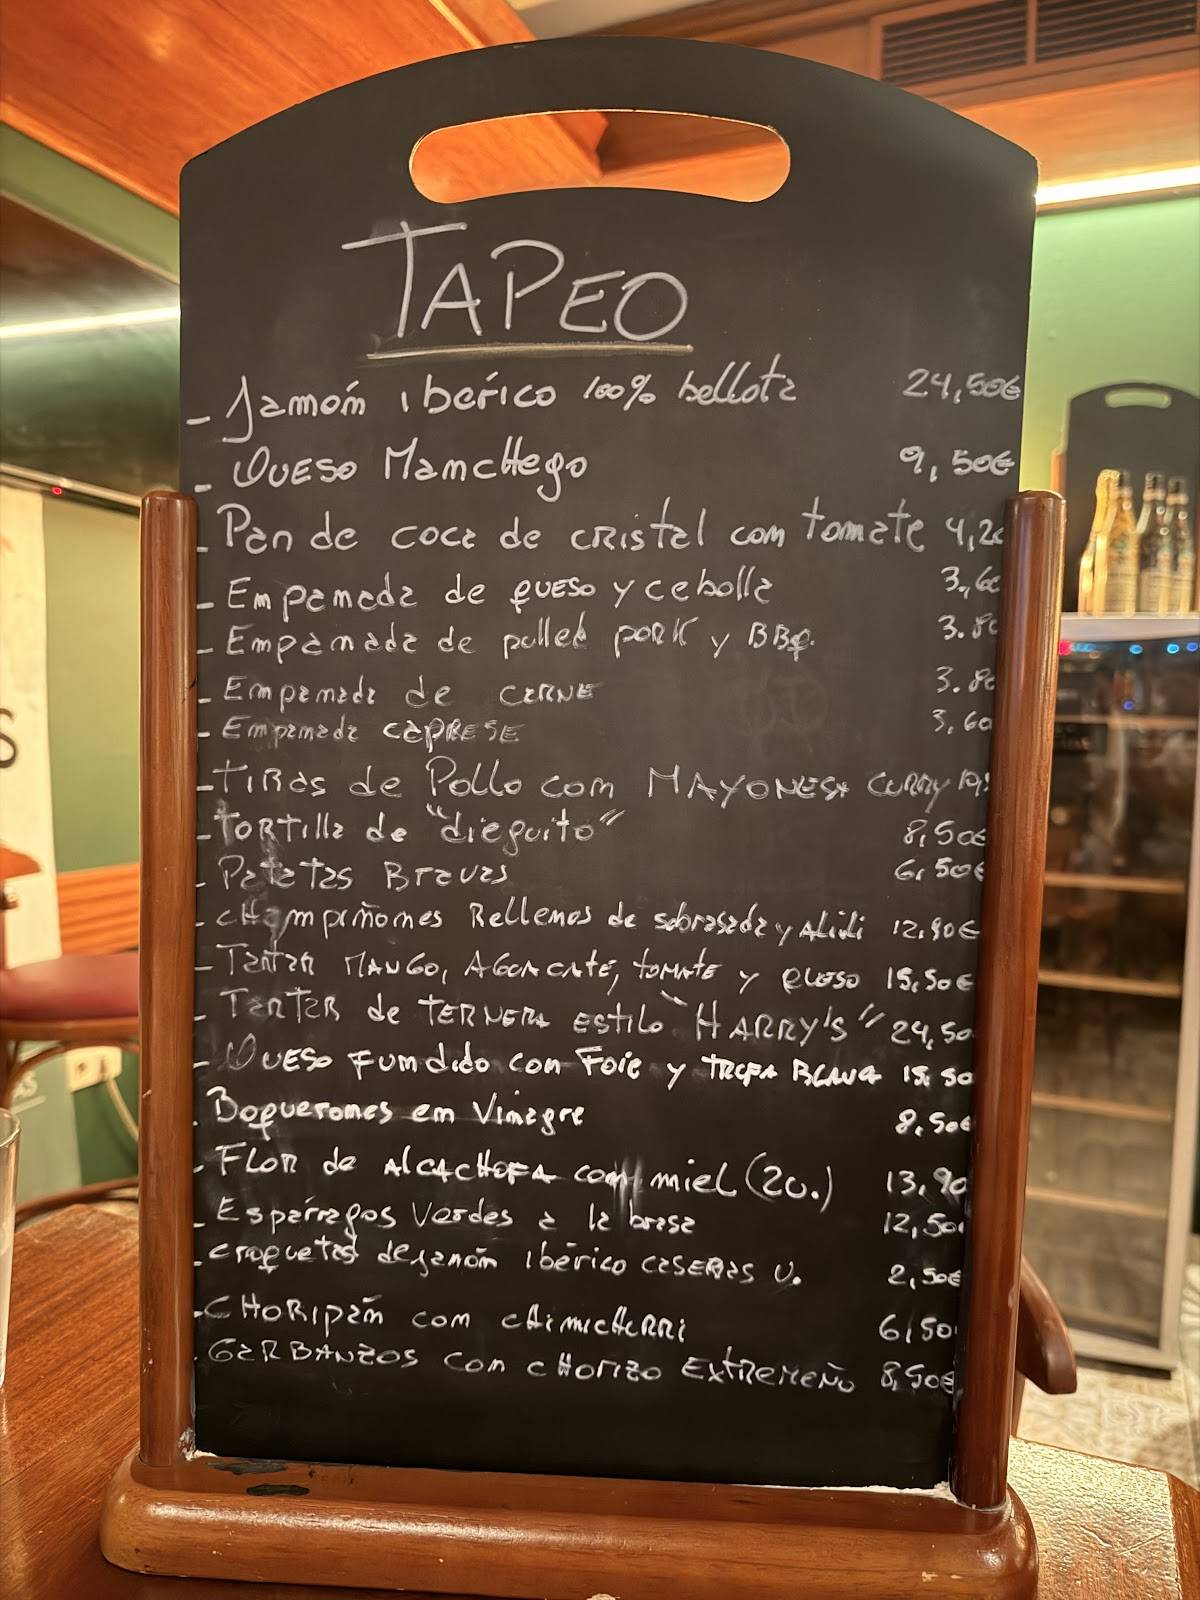 TAPEO
- Jamón ibérico 100% bellota 24,50€
- Queso Manchego 9,50€
- Pan de coca de cristal con tomate 4,20
- Empanada de queso y cebolla 3,60
- Empanada de pulled pork y BBq. 3.80
- Empanada de carne 3.80
- Empanada caprese 3,60
- Tiras de Pollo con MAYONESA CURRY
- Tortilla de "dieguito" 8,50€
- Patatas Bravas 6,50€
- Champiñones Rellenos de sobrasada y Alioli 12,90€
- Tartar MANGO, AGUACATE, tomate y queso 15,50€
- Tartar de TERNERA ESTILO "HARRY'S" 24,50
- Queso Fundido con Foie y TRUFA BLANCA 15,50
. Boquerones en Vinagre 8,50€
- Flor de ALCACHOFA con miel (2u.) 13,90
- Espárragos Verdes a la brasa 12,50
. croquetas de jamón ibérico caseras U. 2,50€
- CHORIPÁN con chimichurri 6,50
. GARBANZOS con chorizo EXTREMEÑO 8,50€
S
AS